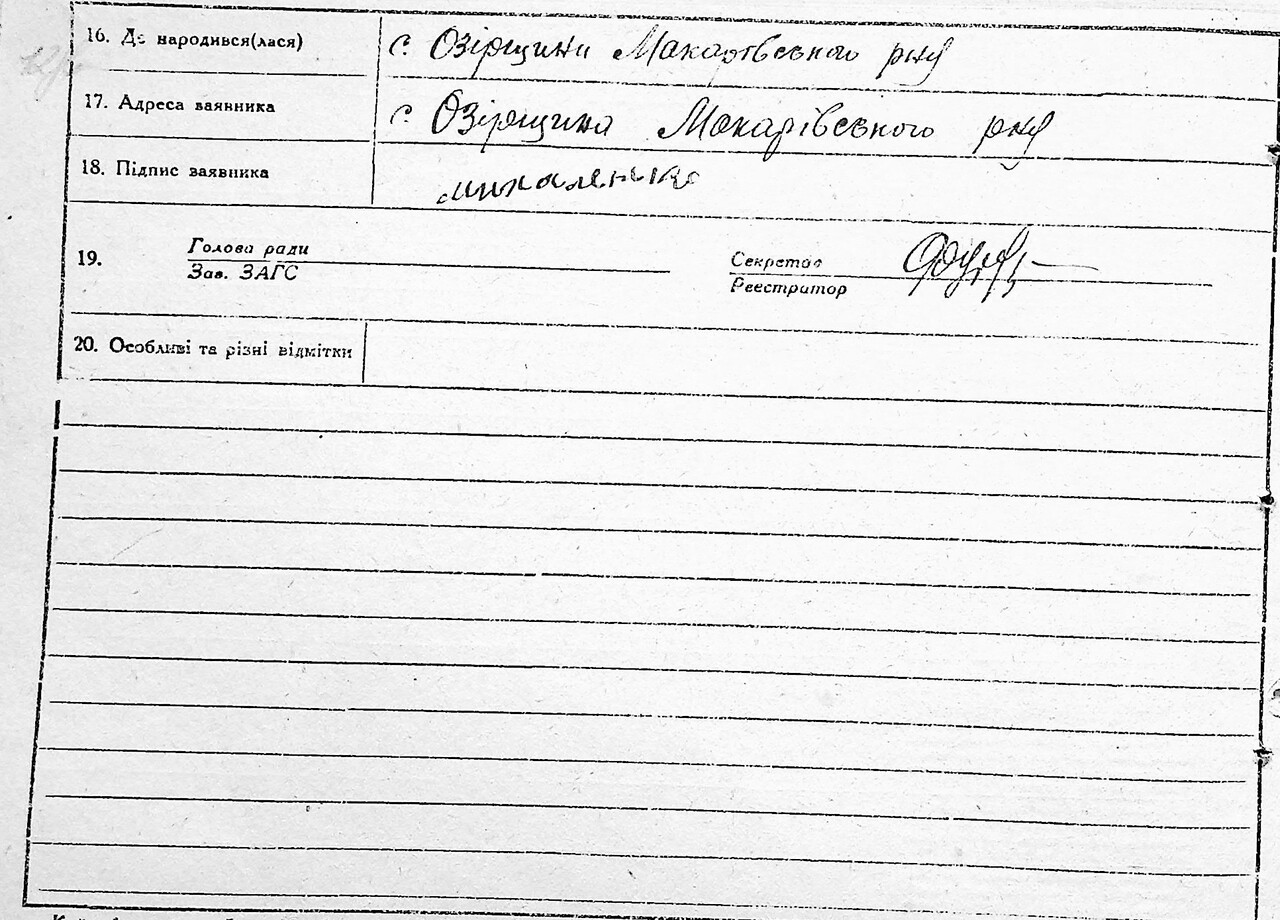 16. Де народився(лася) с. Озірщини Макарівського рну
17. Адреса заявника с. Озірщина Макарівського рну
18. Підпис заявника Михаленко
19. Голова ради
Зав. ЗАГС
Секретар
Реестратор
20. Особливі та різні відмітки